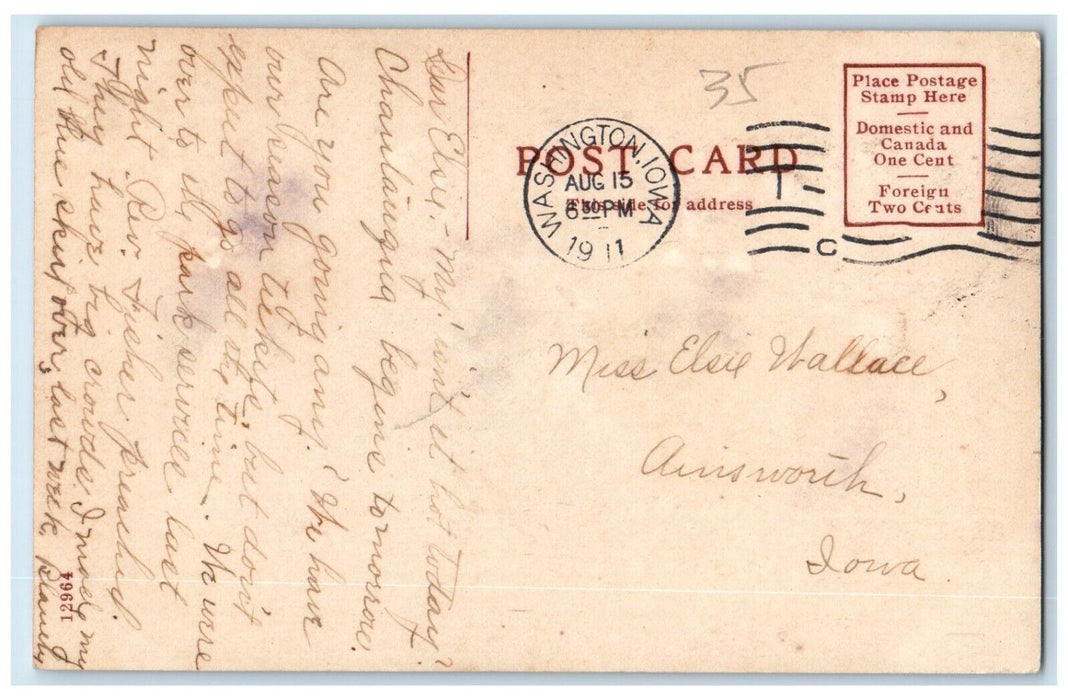 Dear Elsie,- My! isn't it hot today?
Chautauqua begins tomorrow.
Are you going any? We have
our season tickets but don't
expect to go all the time. We were
over to the park services last
night. Rev. Fisher preached.
They have big crowds. I made my
old blue skirt over, last week. Blanche
12964
35
POST CARD
This side for address
WASHINGTON, IOWA
AUG 15
6 30 PM
1911
Place Postage
Stamp Here
Domestic and
Canada
One Cent
Foreign
Two Cents
C
Miss Elsie Wallace,
Ainsworth,
Iowa.